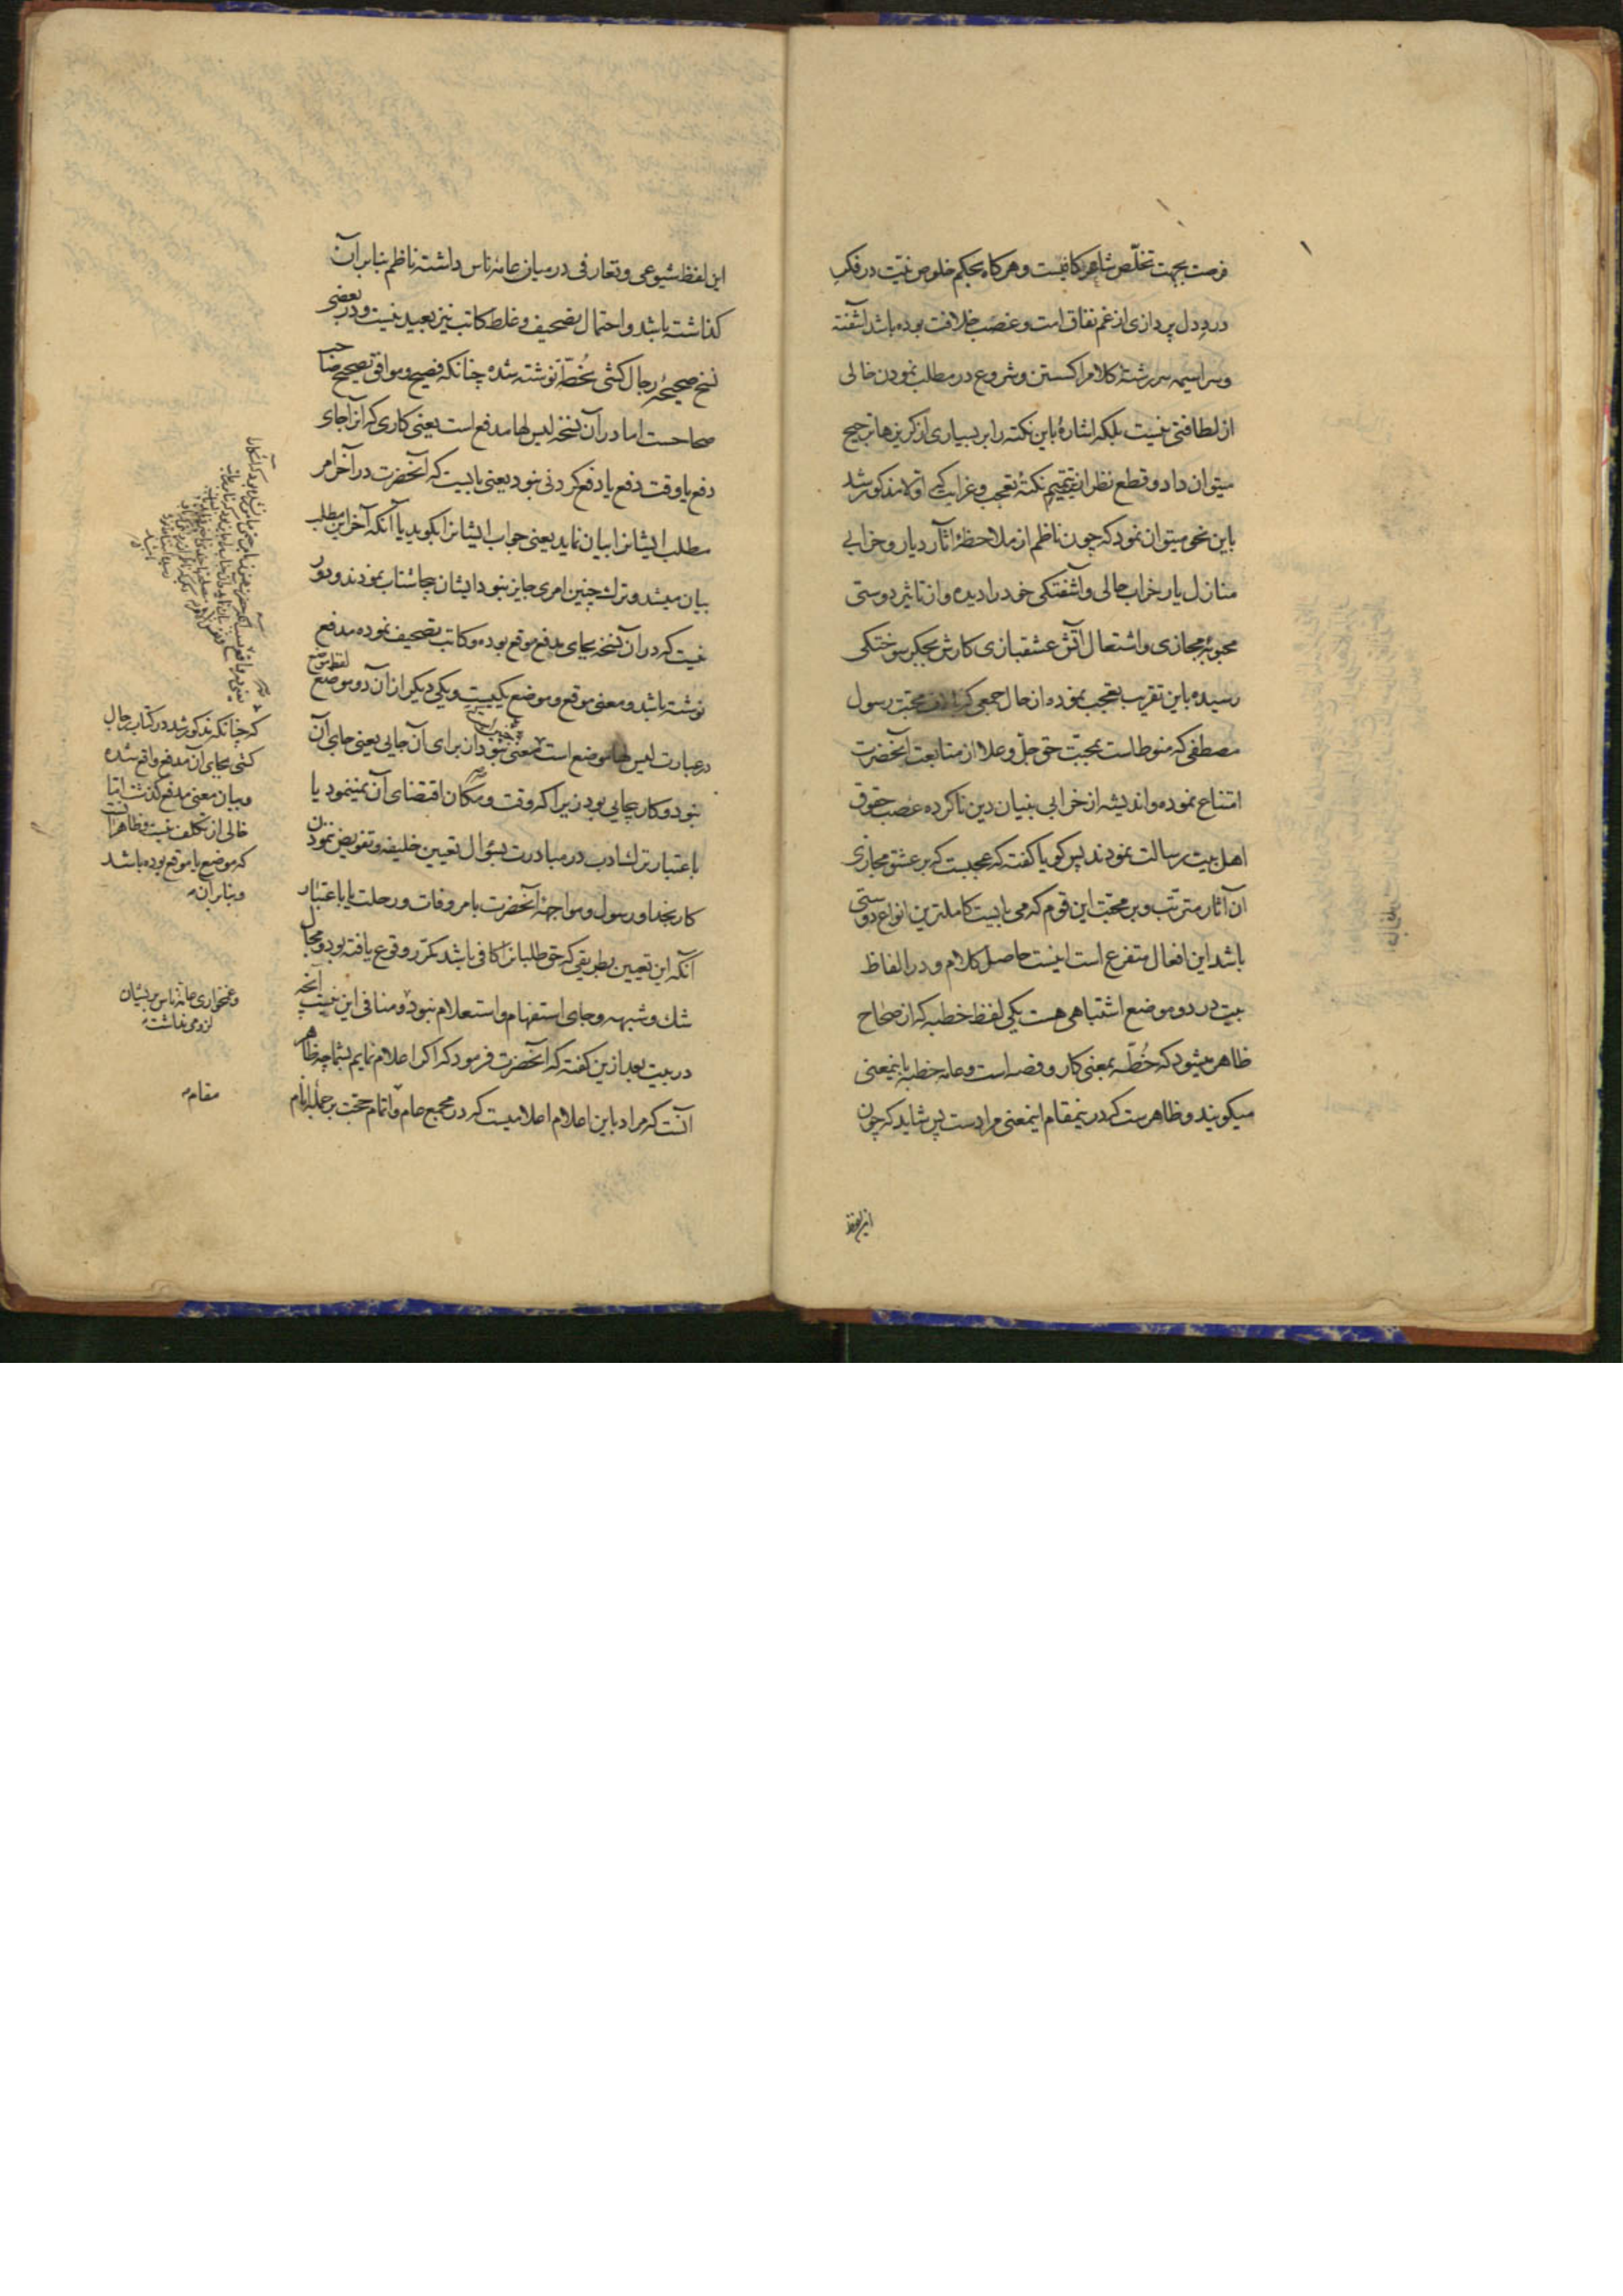 فرصت بجهت تخلّص شاهر کافیست و هرکاه بحکم خلوص نیّت در فکر
درد دل پردازی از غم نفاق امت و غصب خلافت بوده باشد آشفته
و سراسیمه سررشتهٔ کلام را کسستن و شروع در مطلب نمودن خالی
از لطافتی نیست بلکه اشارهٔ باین نکته را بر بسیاری از کریزها ترجیح
میتوان داد و قطع نظر از تتمیم نکتهٔ تعجب و غرابت که اولا مذکور شد
باین نحو میتوان نمود که چون ناظم از ملاحظهٔ آثار دیار و خرابی
منازل یار خراب حالی و آشفتکی خود را دیده و از تاثیر دوستی
محبوبهٔ مجازی و اشتعال آتش عشقبازی کارش بجکر سوختکی
رسیده باین تقریب تعجب نموده از حال جمعی که محبت رسول
مصطفی که منوط است بمحبّت حق جلّ و علا از متابعت آنحضرت
امتناع نموده و اندیشه از خرابی بنیان دین ناکرده غصب حقوق
اهل بیت رسالت نمودند پس کویا کفته که عجبست که بر عشق مجازی
آن آثار مترتب و بر محبت این قوم که می بایست کاملترین انواع دوستی
باشد این افعال متفرع است اینست حاصل کلام و در الفاظ
بیت در دو موضع اشتباهی هست یکی لفظ خطبه که از صحاح
ظاهر میشود که خُطّه بمعنی کار و قصه است و عامه خطبه باینمعنی
میکویند و ظاهرست که درینمقام اینمعنی مرادست پس شاید که چون
این لفظ
این لفظ شیوعی و تعارفی در میان عامهٔ ناس داشته ناظم بنابر آن
کذاشته باشد و احتمال تصحیف و غلط کاتب نیز بعید نیست و در بعضی
نسخ صحیحهٔ رجال کشی بخُطّة نوشته شده چنانکه فصیح و موافق تصحیح صاحب
صحاحست اما در آن نسخه لیس لها مدفع است یعنی کاری که از آنجای
دفع یا وقت دفع یا دفع کردنی نبود یعنی بایست که آنحضرت در آخر امر
مطلب ایشانرا بیان نماید یعنی جواب ایشانرا بکوید یا آنکه آخر این مطلب
بیان میشد و ترک چنین امری جایز نبود ایشان چرا شتاب نمودند و دور
نیست که در آن نسخه بجای مدفع موقع بوده و کاتب تصحیف نموده مدفع
نوشته باشد و معنی موقع و موضع یکیست و یکی دیکر از آن دو موضع لفظ موضع
در عبارت لیس لها موضع است بمعنی نبود از برای آن جایی یعنی جای آن
نبود و کار بجایی بود زیرا که وقت و مکان اقتضای آن نمینمود یا
باعتبار ترک ادب در مبادرت بسؤال تعیین خلیفه و تفویض نمودن
کار بخدا و رسول و مواجهه آنحضرت بامر وفات و رحلت یا باعتبار
آنکه این تعیین بطریقی که حق طلبانرا کافی باشد مکرر وقوع یافته بود و مجال
شک و شبهه و جای استفهام و استعلام نبود و منافی این نیست آنچه
در بیت بعد ازین کفته که آنحضرت فرمود که اکر اعلام نمایم بشما چه ظاهر
آنست که مراد باین اعلام اعلامیست که در مجمع عام و اتمام حجّت بر جملهٔ انام
که چنانکه مذکور شد در کتاب رجال
کشی بجای آن مدفع واقع شده
و بیان معنی مدفع کذشت اما
خالی از تکلف نیست و ظاهر آنست
که موضع یا موقع بوده باشد
و بنابر آن
و غمخواری عامهٔ ناس بر ایشان
لزومی نداشت
مقام